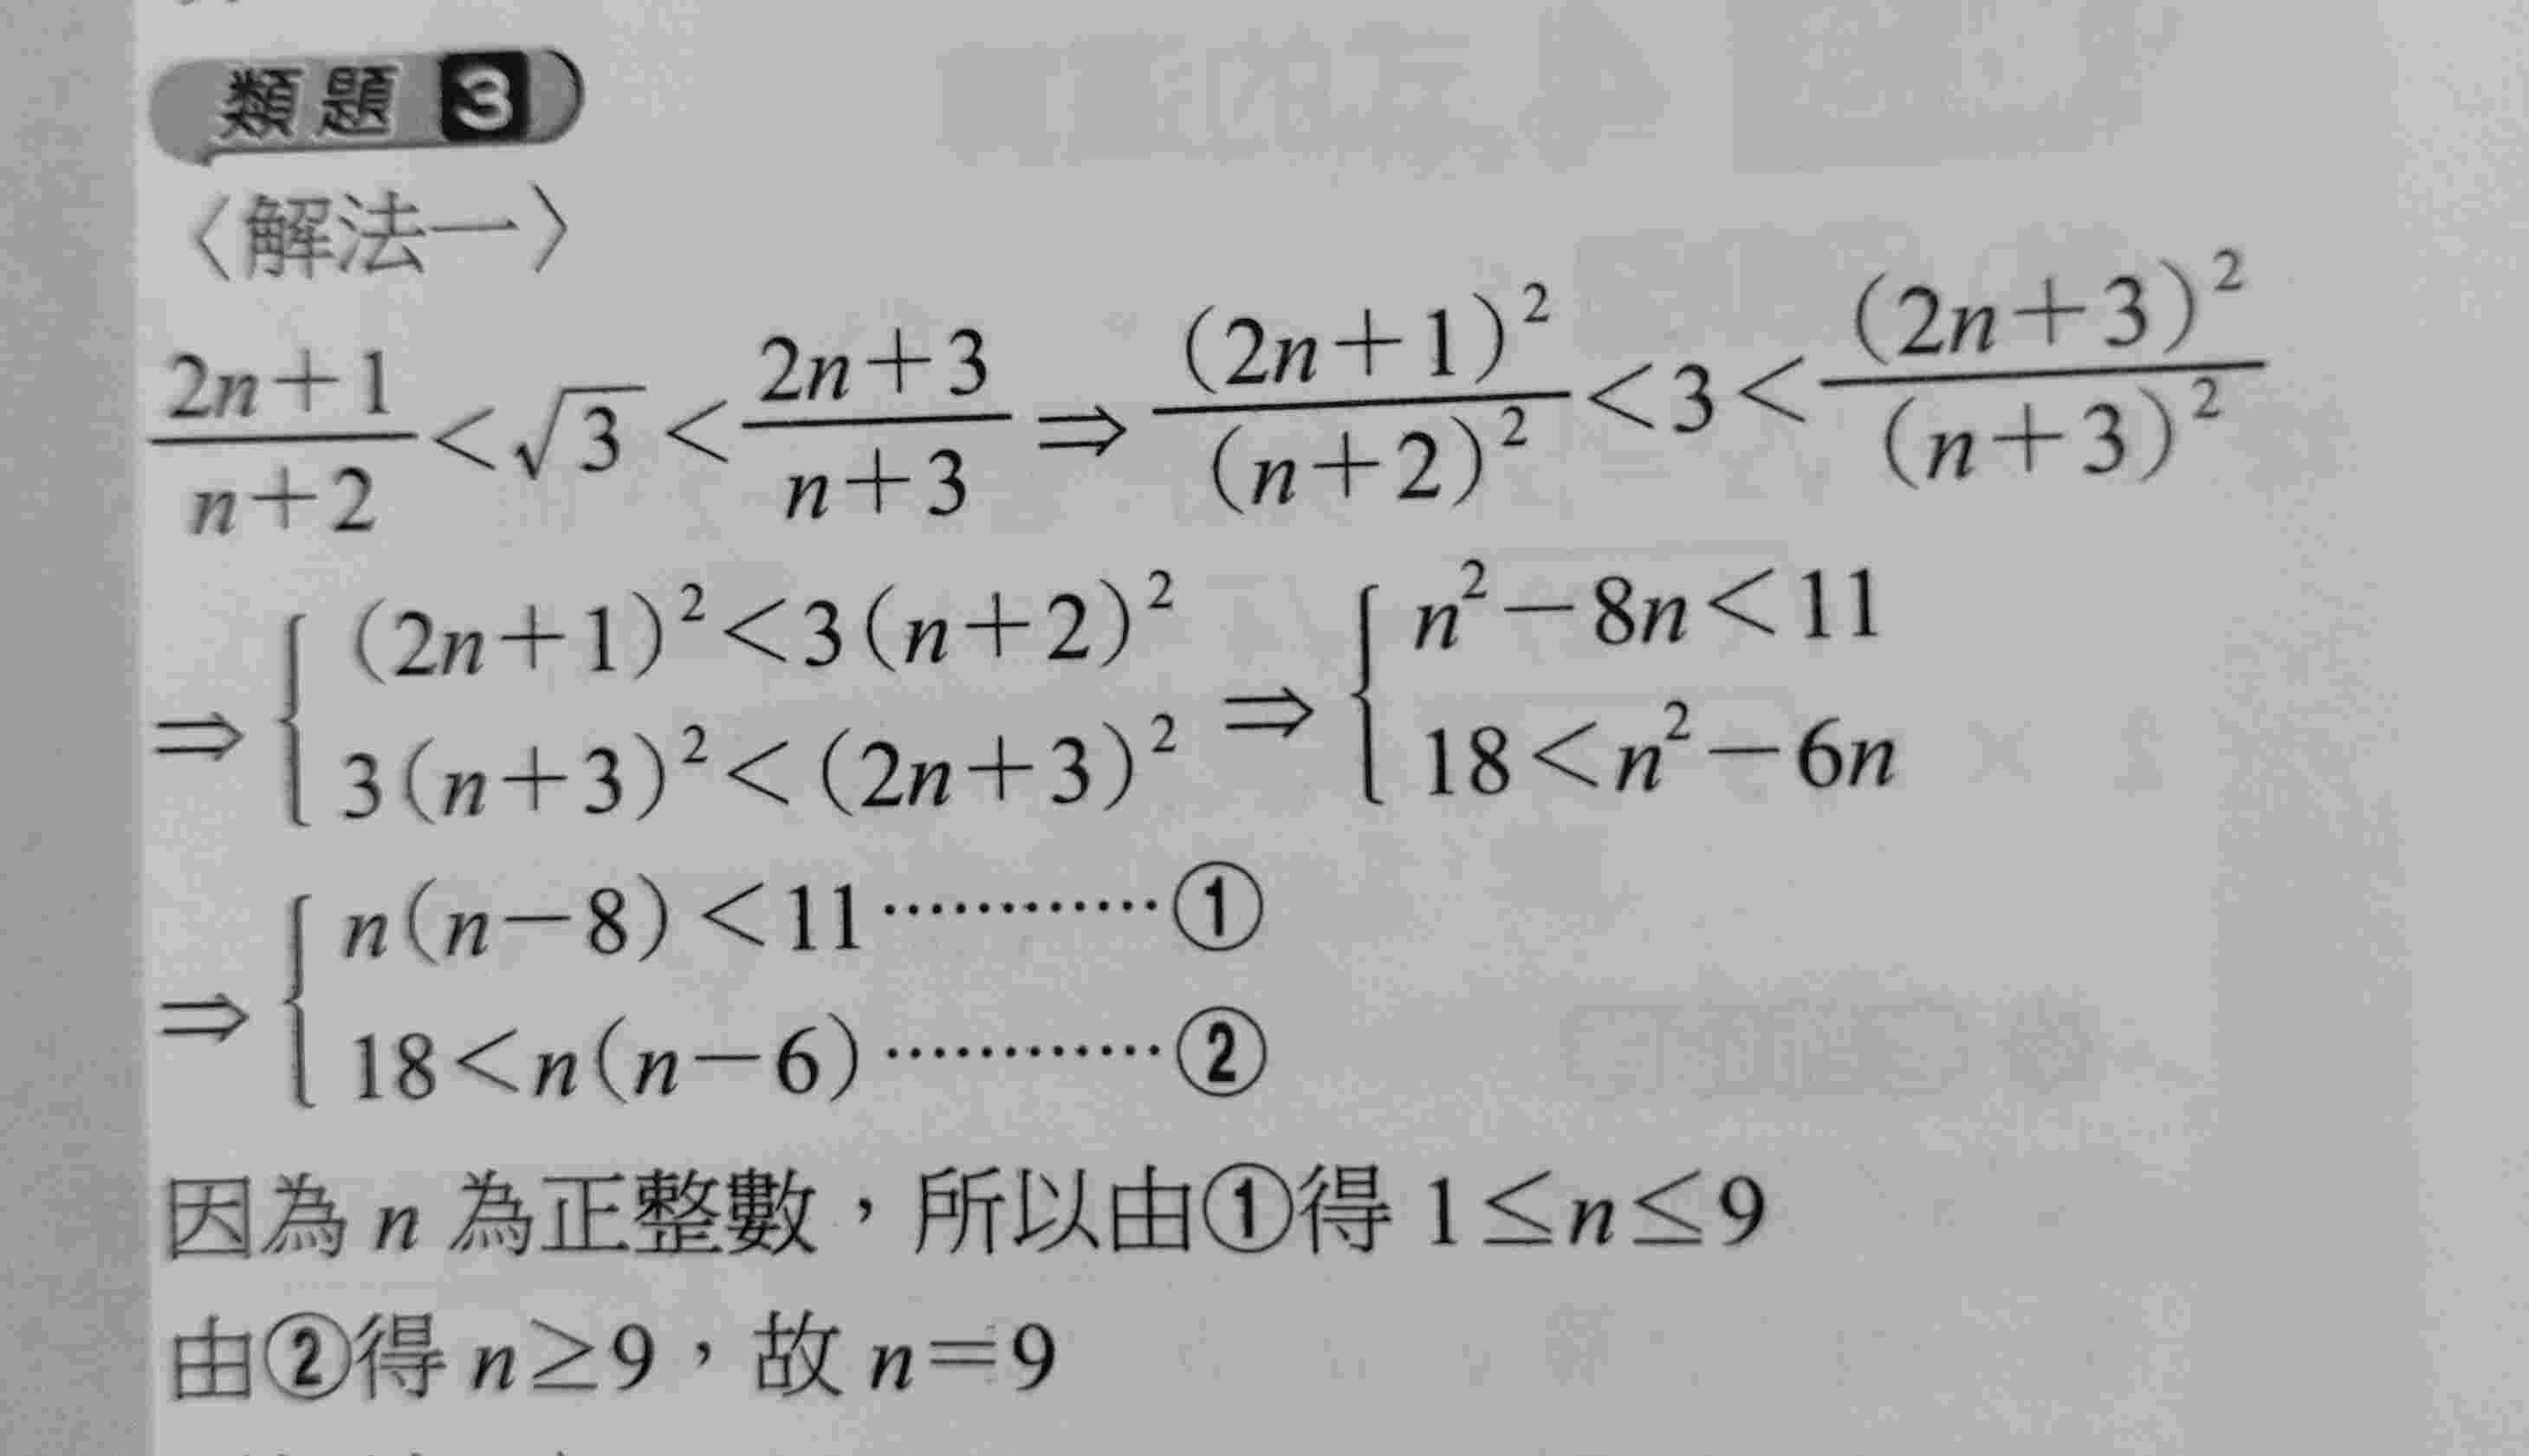 類題 3
〈解法一〉
\frac{2n+1}{n+2}<\sqrt{3}<\frac{2n+3}{n+3}⇒\frac{(2n+1)^2}{(n+2)^2}<3<\frac{(2n+3)^2}{(n+3)^2}
⇒{ (2n+1)^2<3(n+2)^2 ⇒{ n^2-8n<11
3(n+3)^2<(2n+3)^2 18<n^2-6n
⇒{ n(n-8)<11…………①
18<n(n-6)…………②
因為 n 為正整數，所以由①得 1≤n≤9
由②得 n≥9，故 n=9